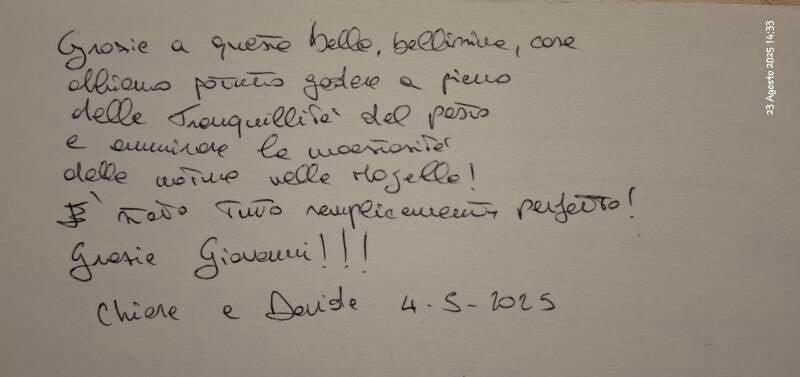 Grazie a questa bella, bellissima, casa
abbiamo potuto godere a pieno
della tranquillità del posto
e ammirare la maestosità
della natura nella Majella!
È stato tutto semplicemente perfetto!
Grazie Giovanni!!!
Chiara e Davide 4-5-2025
23 Agosto 2025 14:33